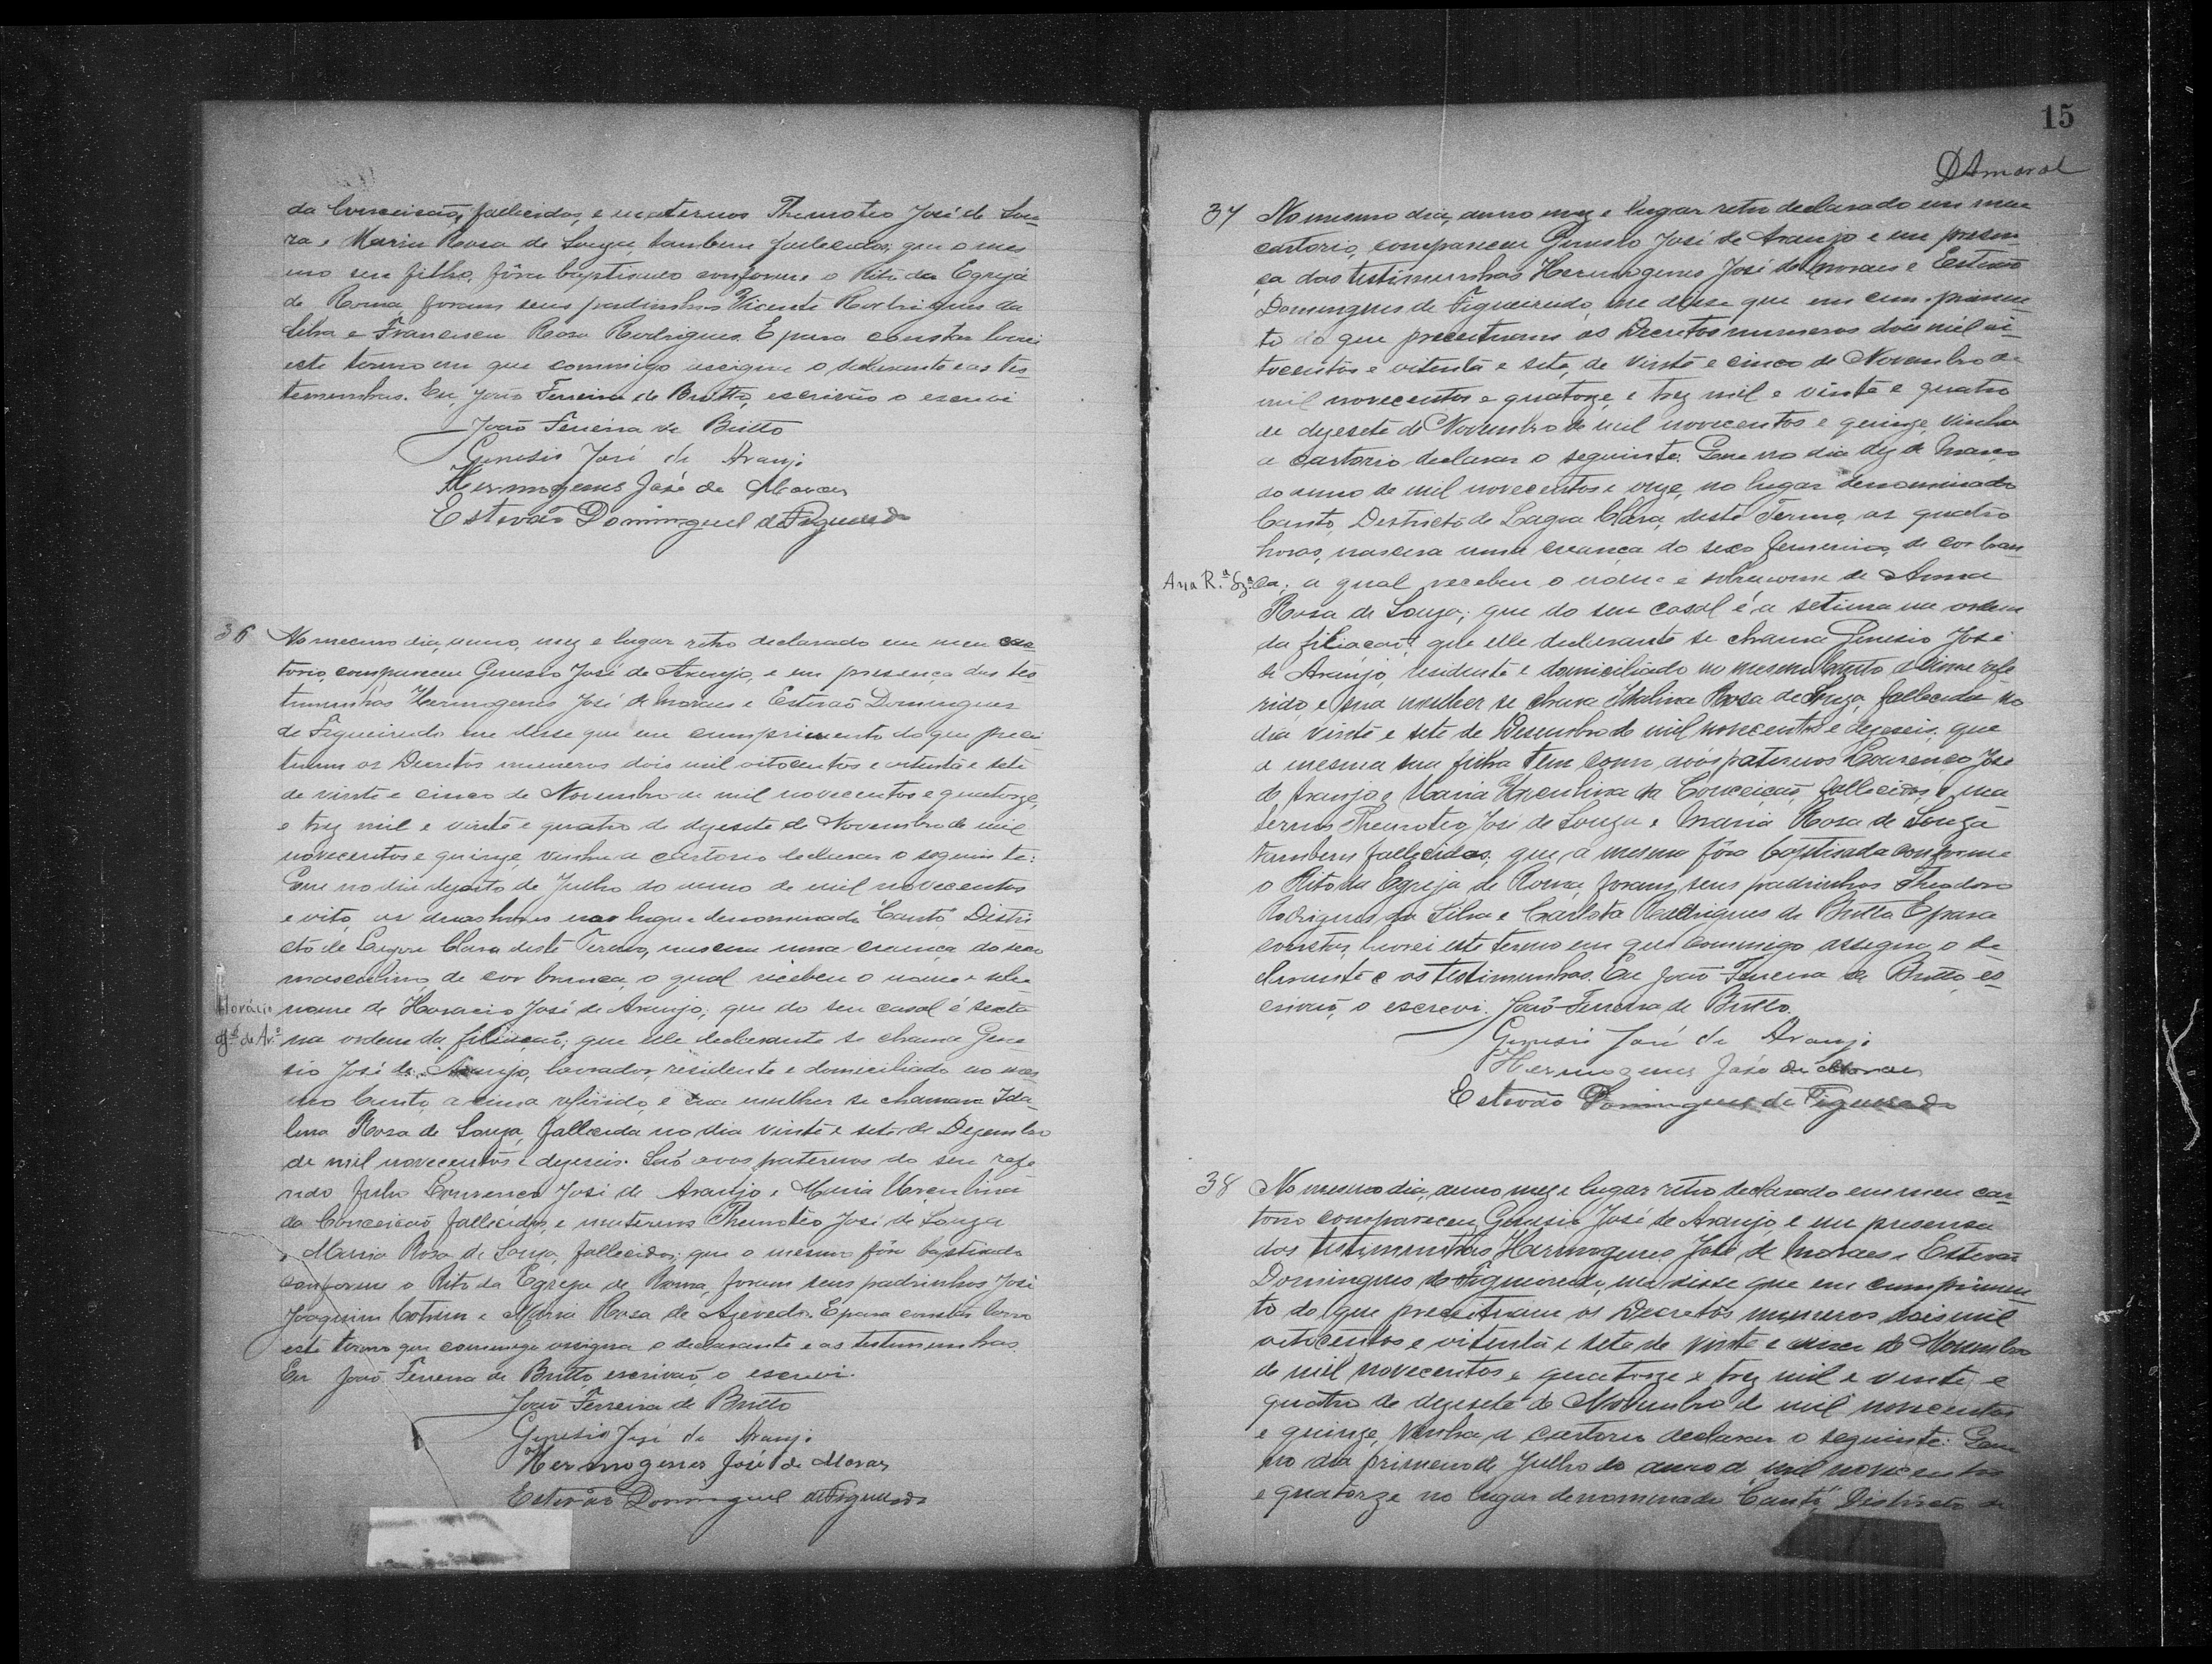 da Conceição, fallecidos, e maternos Themoteo José de Sou-
za e Maria Rosa de Souza, tambem fallecidos; que o mes
mo seu filho, fôra baptisado conforme o Rito da Egreja
de Roma, foram seus padrinhos Vicente Rodrigues da
Silva e Francisca Rosa Rodrigues. E para constar lavrei
este termo em que commigo assigna o declarante e as tes-
temunhas. Eu, João Ferreira de Britto, escrivão o escrevi
João Ferreira de Britto
Genesio José de Araujo
Hermogenes José de Moraes
Estevão Domingues de Figueredo
36 No mesmo dia, anno, mez e lugar retro declarado em meu car-
torio, compareceu Genesio José de Araujo, e em presença das tes-
timunhas Hermogenes José de Moraes e Estevão Domingues
de Figueiredo me disse que em cumprimento do que precei
tuam os Decretos numeros dois mil oitocentos e oitenta e sete
de vinte e cinco de Novembro de mil novecentos e quatorze,
e trez mil e vinte e quatro de dezesete de Novembro de mil
novecentos e quinze, vinha a cartorio declarar o seguinte:
Que no dia dezoito de Julho do anno de mil novecentos
e oito, as duas horas no lugar denominado "Canto" Distri
cto de Lagoa Clara deste Termo, nasceu uma criança do sexo
masculino, de cor branca, o qual recebeu o nome e sobre
Horácio nome de Horacio José de Araujo; que do seu casal é sexto
Jé de Arº na ordem da filiação; que elle declarante se chama Gene
sio José de Araujo, lavrador, residente e domiciliado no mes
mo Canto, acima referido, e sua mulher se chamava Ida-
lina Rosa de Souza, fallecida no dia vinte e sete de Dezembro
de mil novecentos e dezeseis. São avos paternos do seu refe
rido filho Lourenço José de Araujo e Maria Urculina
da Conceicão, fallecidos, e maternos Themoteo José de Souza
e Maria Rosa de Souza, fallecidos; que o mesmo fôra baptisado
conforme o Rito da Egreja de Roma, foram seus padrinhos José
Joaquim Cotrim e Maria Rosa de Azevedo. E para constar lavro
este termo que commigo assigna o declarante e as testimunhas.
Eu João Ferreira de Britto escrivão o escrevi.
João Ferreira de Britto
Genesio José de Araujo
Hermogenes José de Moraes
Estevão Domingues de Figueredo
15
D'Amaral
37 No mesmo dia, anno mez e lugar retro declarado em meu
cartorio, compareceu Genesio José de Araujo e em presen
ça das testimunhas Hermogenes José de Moraes e Estevão
Domingues de Figueiredo, me disse que em cumprimen
to do que preceituam os Decretos numeros dois mil oi-
tocentos e oitenta e sete, de vinte e cinco de Novembro de
mil novecentos e quatorze, e trez mil e vinte e quatro
de dezesete de Novembro de mil novecentos e quinze, vinha
a cartorio declarar o seguinte: Que no dia dez de Março
do anno de mil novecentos e onze, no lugar denominado
Canto, Destricto de Lagoa Clara, deste Termo, as quatro
horas, nascera uma creança do sexo femenino, de cor bran
Ana R.ª Sz.ª ca; a qual recebeu o nome e sobrenome de Anna
Rosa de Souza; que do seu casal é a setima na ordem
da filiacaõ; que elle declarante se chama Genesio José
de Araujo, residente e domiciliado no mesmo Canto acima refe
rido, e sua mulher se chama Idalina Rosa de Souza, fallecida no
dia vinte e sete de Desembro de mil novecentos e dezeseis; que
a mesma sua filha tem como avós paternos Lourenço José
de Araujo e Maria Urculina da Conceição, fallecidos e ma
ternos Themoteo José de Souza e Maria Rosa de Souza
tambem fallecidos; que a mesma fôra baptisada conforme
o Rito da Egreja de Roma, foram seus padrinhos Theodoro
Rodrigues da Silva e Carlota Rodrigues de Britto. E para
constar, lavrei este termo em que commigo assegna o de
clarante e as testimunhas. Eu João Ferreira de Britto, es-
crivão, o escrevi. João Ferreira de Britto.
Genesio José de Araujo
Hermogenes José de Moraes
Estevão Domingues de Figueredo
38 No mesmo dia, anno mez e lugar retro declarado em meu car-
torio compareceu Genesio José de Araujo e em presensa
das testimunhas Hermogenes José de Moraes e Estevão
Domingues de Figueiredo, me disse que em cumprimen
to do que preceituam os Decretos numeros dois mil
oitocentos e oitenta e sete de vinte e cinco de Novembro
de mil novecentos e quatorze e trez mil e vinte e
quatro de dezesete de Novembro de mil novecentos
e quinze, vinha a cartorio declarar o seguinte: Que
no dia primeiro de Julho do anno de mil novecentos
e quatorze no lugar denominado "Canto", Districto de